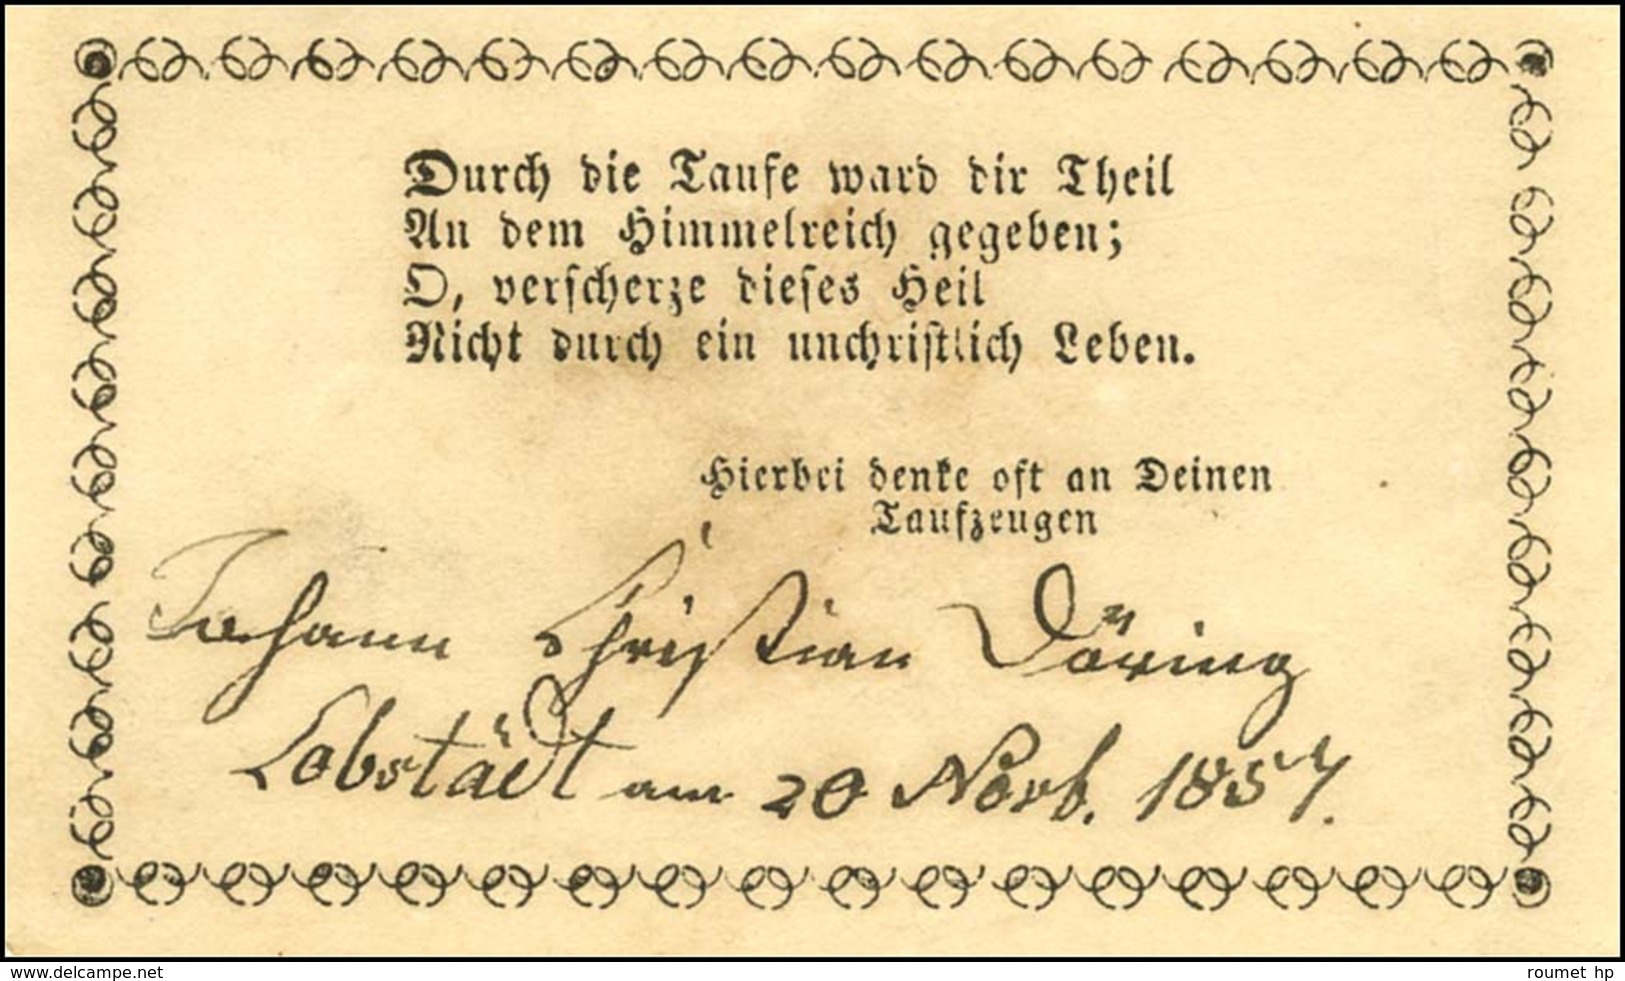 Durch die Taufe ward dir Theil
An dem Himmelreich gegeben;
O, verscherze dieses Heil
Nicht durch ein unchristlich Leben.
Hierbei denke oft an Deinen
Taufzeugen
Johann Christian Döring
Lobstädt am 20 Novb. 1857.
www.delcampe.net
roumet hp